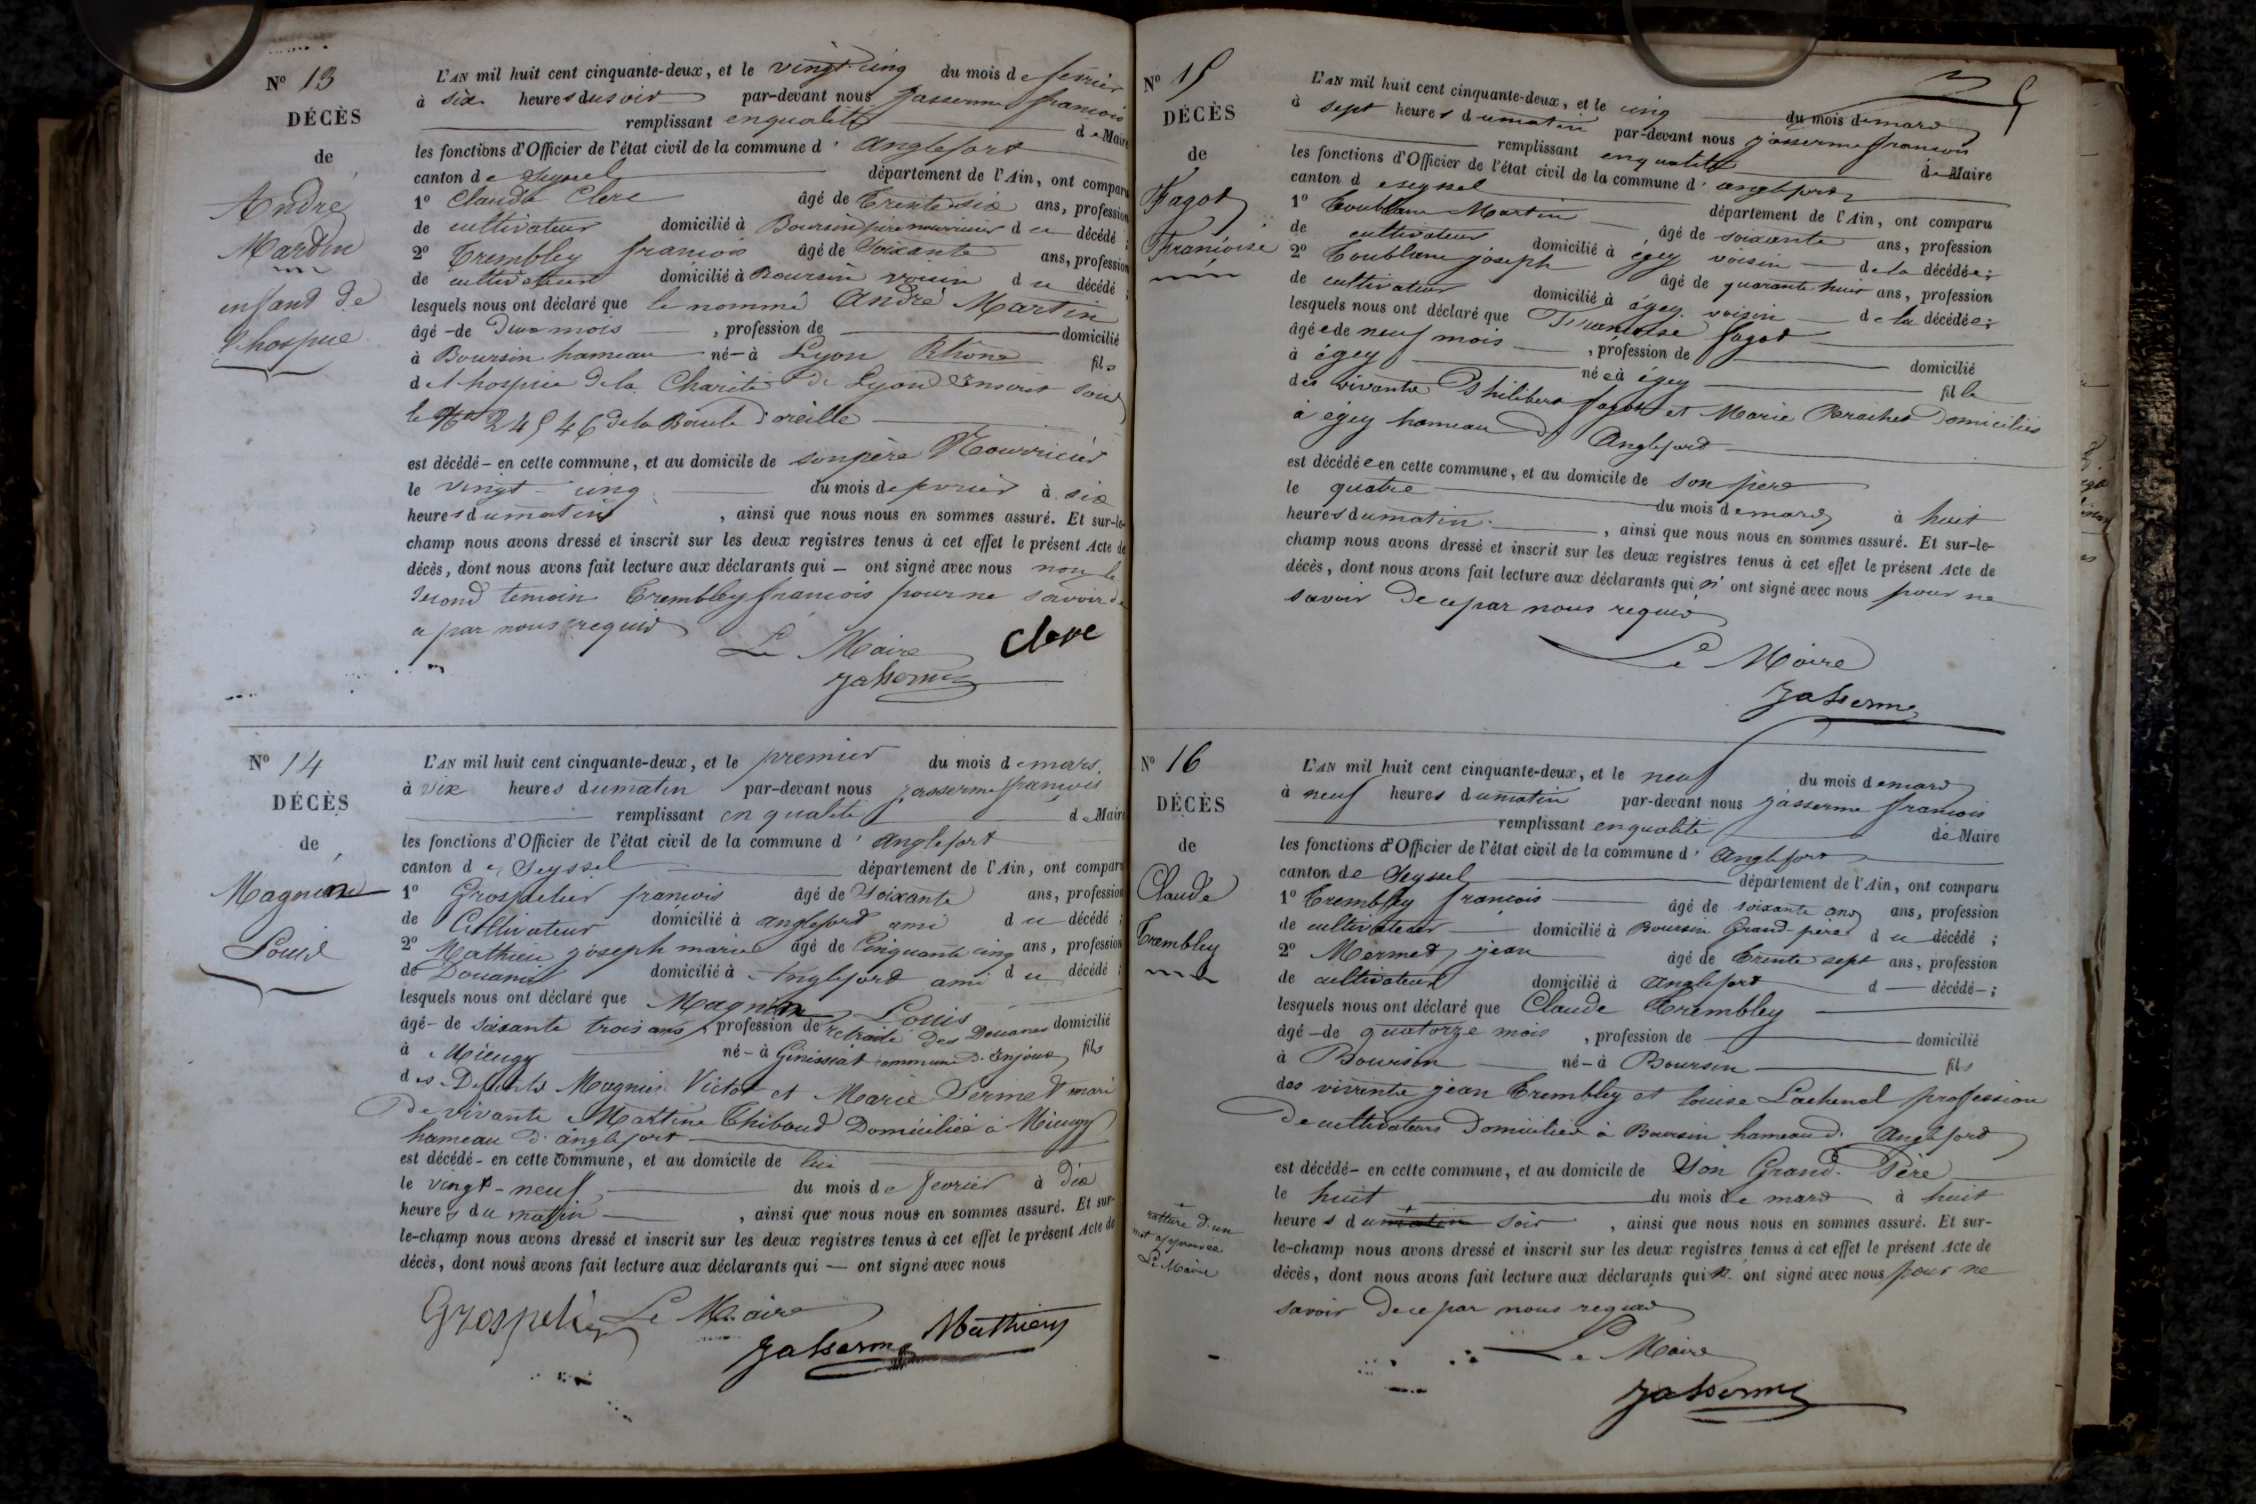 N° 13
DÉCÈS
de
André
Martin
enfant de
l'hospice
L'AN mil huit cent cinquante-deux, et le vingt-cinq du mois de fevrier
à six heures du soir par-devant nous Jasserme francois
remplissant en qualité de Maire
les fonctions d'Officier de l'état civil de la commune d'anglefort
canton de Seyssel département de l'Ain, ont comparu
1° Claude Clerc âgé de Trente six ans, profession
de cultivateur domicilié à Boursin père nourricier du décédé ;
2° Trembley francois âgé de Soixante ans, profession
de cultivateur domicilié à Boursin voisin du décédé ;
lesquels nous ont déclaré que le nommé André Martin
âgé - de deux mois , profession de domicilié
à Boursin hameau né - à Lyon Rhône fils
de l'hospice de la Charité de Lyon inscrit sous
le N° 24546 de la Boucle d'oreille
est décédé - en cette commune, et au domicile de son père Nourricier
le vingt-cinq du mois de fevrier à six
heures du matin , ainsi que nous nous en sommes assuré. Et sur-le-
champ nous avons dressé et inscrit sur les deux registres tenus à cet effet le présent Acte de
décès, dont nous avons fait lecture aux déclarants qui — ont signé avec nous non le
second temoin Trembley francois pour ne savoir de
ce par nous requis
Le Maire Clerc
Jasserme
N° 14
DÉCÈS
de
Magnin
Louis
L'AN mil huit cent cinquante-deux, et le premier du mois de mars
à dix heures du matin par-devant nous Jasserme francois
remplissant en qualité de Maire
les fonctions d'Officier de l'état civil de la commune d'anglefort
canton de Seyssel département de l'Ain, ont comparu
1° Grospelier francois âgé de Soixante ans, profession
de Cultivateur domicilié à anglefort ami du décédé ;
2° Mathieu joseph marie âgé de Cinquante cinq ans, profession
de Douanier domicilié à Anglefort ami du décédé ;
lesquels nous ont déclaré que Magnin Louis
âgé - de soixante trois ans , profession de retraité des Douanes domicilié
à Mieugy né - à Ginissiat commune d'Injoux fils
des Defunts Magnin Victor et Marie Sermet mari
De vivante Martine Thiboud Domiciliée à Mieugy
hameau d'anglefort
est décédé - en cette commune, et au domicile de lui
le vingt-neuf du mois de fevrier à dix
heures du matin , ainsi que nous nous en sommes assuré. Et sur-
le-champ nous avons dressé et inscrit sur les deux registres tenus à cet effet le présent Acte de
décès, dont nous avons fait lecture aux déclarants qui — ont signé avec nous
Grospelier Le Maire Mathieu
Jasserme
N° 15
DÉCÈS
de
Fagot
Francoise
L'AN mil huit cent cinquante-deux, et le cinq du mois de mars
à sept heures du matin par-devant nous jasserme francois
remplissant en qualité de Maire
les fonctions d'Officier de l'état civil de la commune d'anglefort
canton de seyssel département de l'Ain, ont comparu
1° Toublanc Martin âgé de soixante ans, profession
de cultivateur domicilié à égey voisin de la décédée ;
2° Toublanc joseph âgé de quarante huit ans, profession
de cultivateur domicilié à égey voisin de la décédée ;
lesquels nous ont déclaré que Francoise fagot
âgée de neuf mois , profession de domicilié
à égey née à égey fille
des vivants Philibert fagot et Marie Domiciliés
à égey hameau d'Anglefort
est décédée en cette commune, et au domicile de son père
le quatre du mois de mars à huit
heures du matin , ainsi que nous nous en sommes assuré. Et sur-le-
champ nous avons dressé et inscrit sur les deux registres tenus à cet effet le présent Acte de
décès, dont nous avons fait lecture aux déclarants qui n'ont signé avec nous pour ne
savoir de ce par nous requis
Le Maire
Jasserme
N° 16
DÉCÈS
de
Claude
Trembley
L'AN mil huit cent cinquante-deux, et le neuf du mois de mars
à neuf heures du matin par-devant nous jasserme francois
remplissant en qualité de Maire
les fonctions d'Officier de l'état civil de la commune d'anglefort
canton de Seyssel département de l'Ain, ont comparu
1° Trembley francois âgé de soixante ans ans, profession
de cultivateur domicilié à Boursin Grand-père du décédé ;
2° Mermet jean âgé de Trente sept ans, profession
de cultivateur domicilié à anglefort d — décédé - ;
lesquels nous ont déclaré que Claude Trembley
âgé - de quatorze mois , profession de domicilié
à Boursin né - à Boursin fils
des vivants jean Trembley et louise Lachenal profession
De cultivateurs Domiciliés à Boursin hameau d'Anglefort
est décédé - en cette commune, et au domicile de Son Grand-Père
le huit du mois de mars à huit
heures du matin soir , ainsi que nous nous en sommes assuré. Et sur-
le-champ nous avons dressé et inscrit sur les deux registres tenus à cet effet le présent Acte de
décès, dont nous avons fait lecture aux déclarants qui n'ont signé avec nous pour ne
savoir de ce par nous requis
rature d'un
mot approuvée
Le Maire
Le Maire
Jasserme